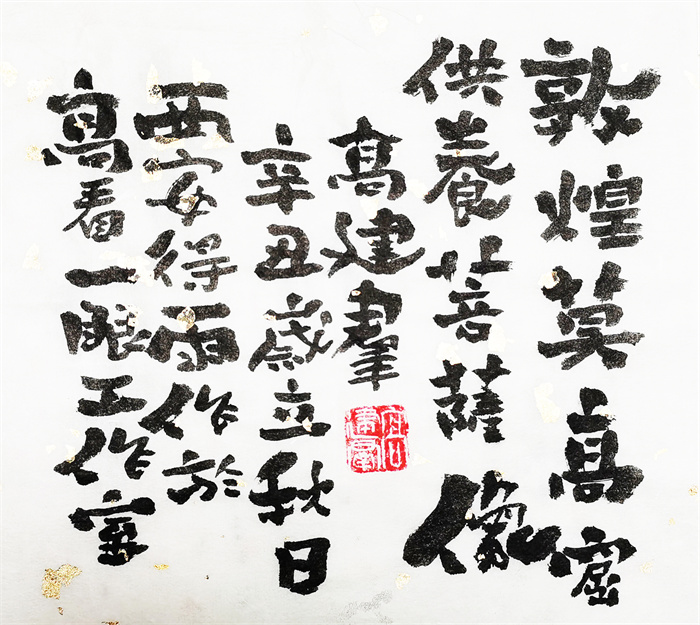 敦煌莫高窟
供養菩薩像
高建羣
辛丑歲立秋日
西安得雨作於
高看一眼工作室